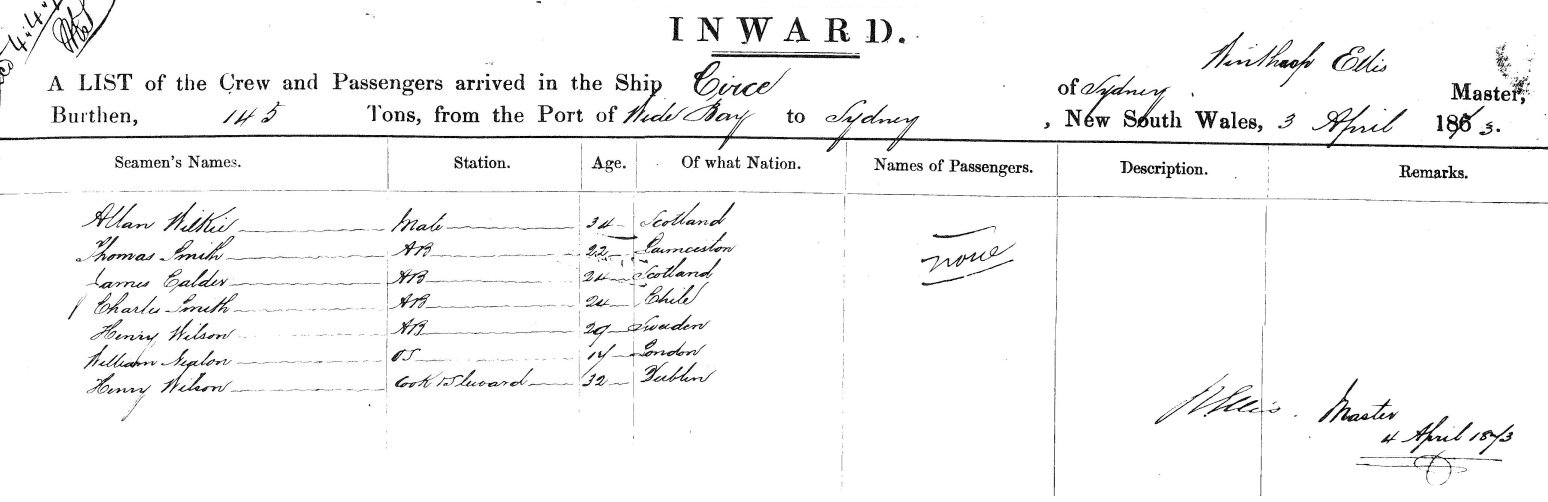 4.4.73
INWARD.
Winthrop Ellis
A LIST of the Crew and Passengers arrived in the Ship Circe of Sydney Master,
Burthen, 145 Tons, from the Port of Wide Bay to Sydney, New South Wales, 3 April 1873.
Seamen's Names. Station. Age. Of what Nation. Names of Passengers. Description. Remarks.
Allan Wilkie Mate 34 Scotland
Thomas Smith AB 22 Launceston none
James Calder AB 24 Scotland
Charles Smith AB 24 Chile
Henry Wilson AB 29 Sweden
William OS 17 London
Henry Wilson Cook & Steward 32 Dublin
WEllis. Master
4 April 1873